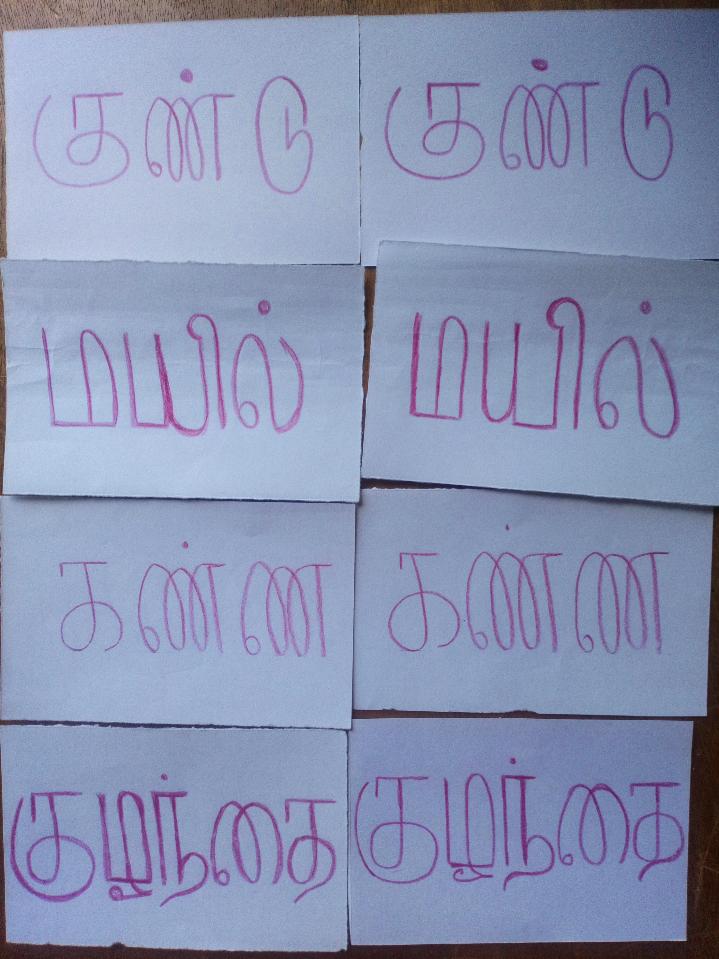 குண்டு குண்டு
மயில் மயில்
கண்ண கண்ண
குழந்தை குழந்தை